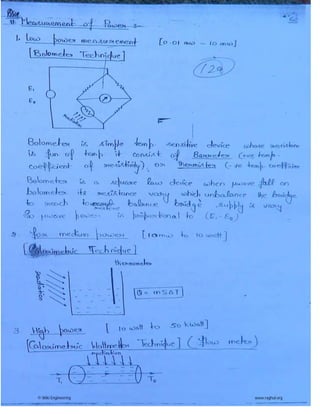 Measurement of Power :-
1. Low power measurement [0.01 mw – 10 mw]
[Bolometer Technique]
129
E₁
E₀
Bolometer is simple temp. sensitive device whose resistance
is fun of temp. it consist of Barometer (+ve temp.
coefficient of resistivity), or Thermistor (-ve temp coefficien
Bolometer is a square law device when power fall on
bolometer its resistance vary which unbalance the bridge
to reach to balance bridge supply is vary.
So power is proportional to (E₁-E₀)
2. for medium power [10mw to 10 watt]
[Calorimetric Technique]
thermometer
radiation
Q = msΔT
3. High power [10 watt to 50 kwatt]
[Calorimetric Wattmeter Technique] (flow meter)
radiation
T₁
T₀
© Wiki Engineering www.raghul.org